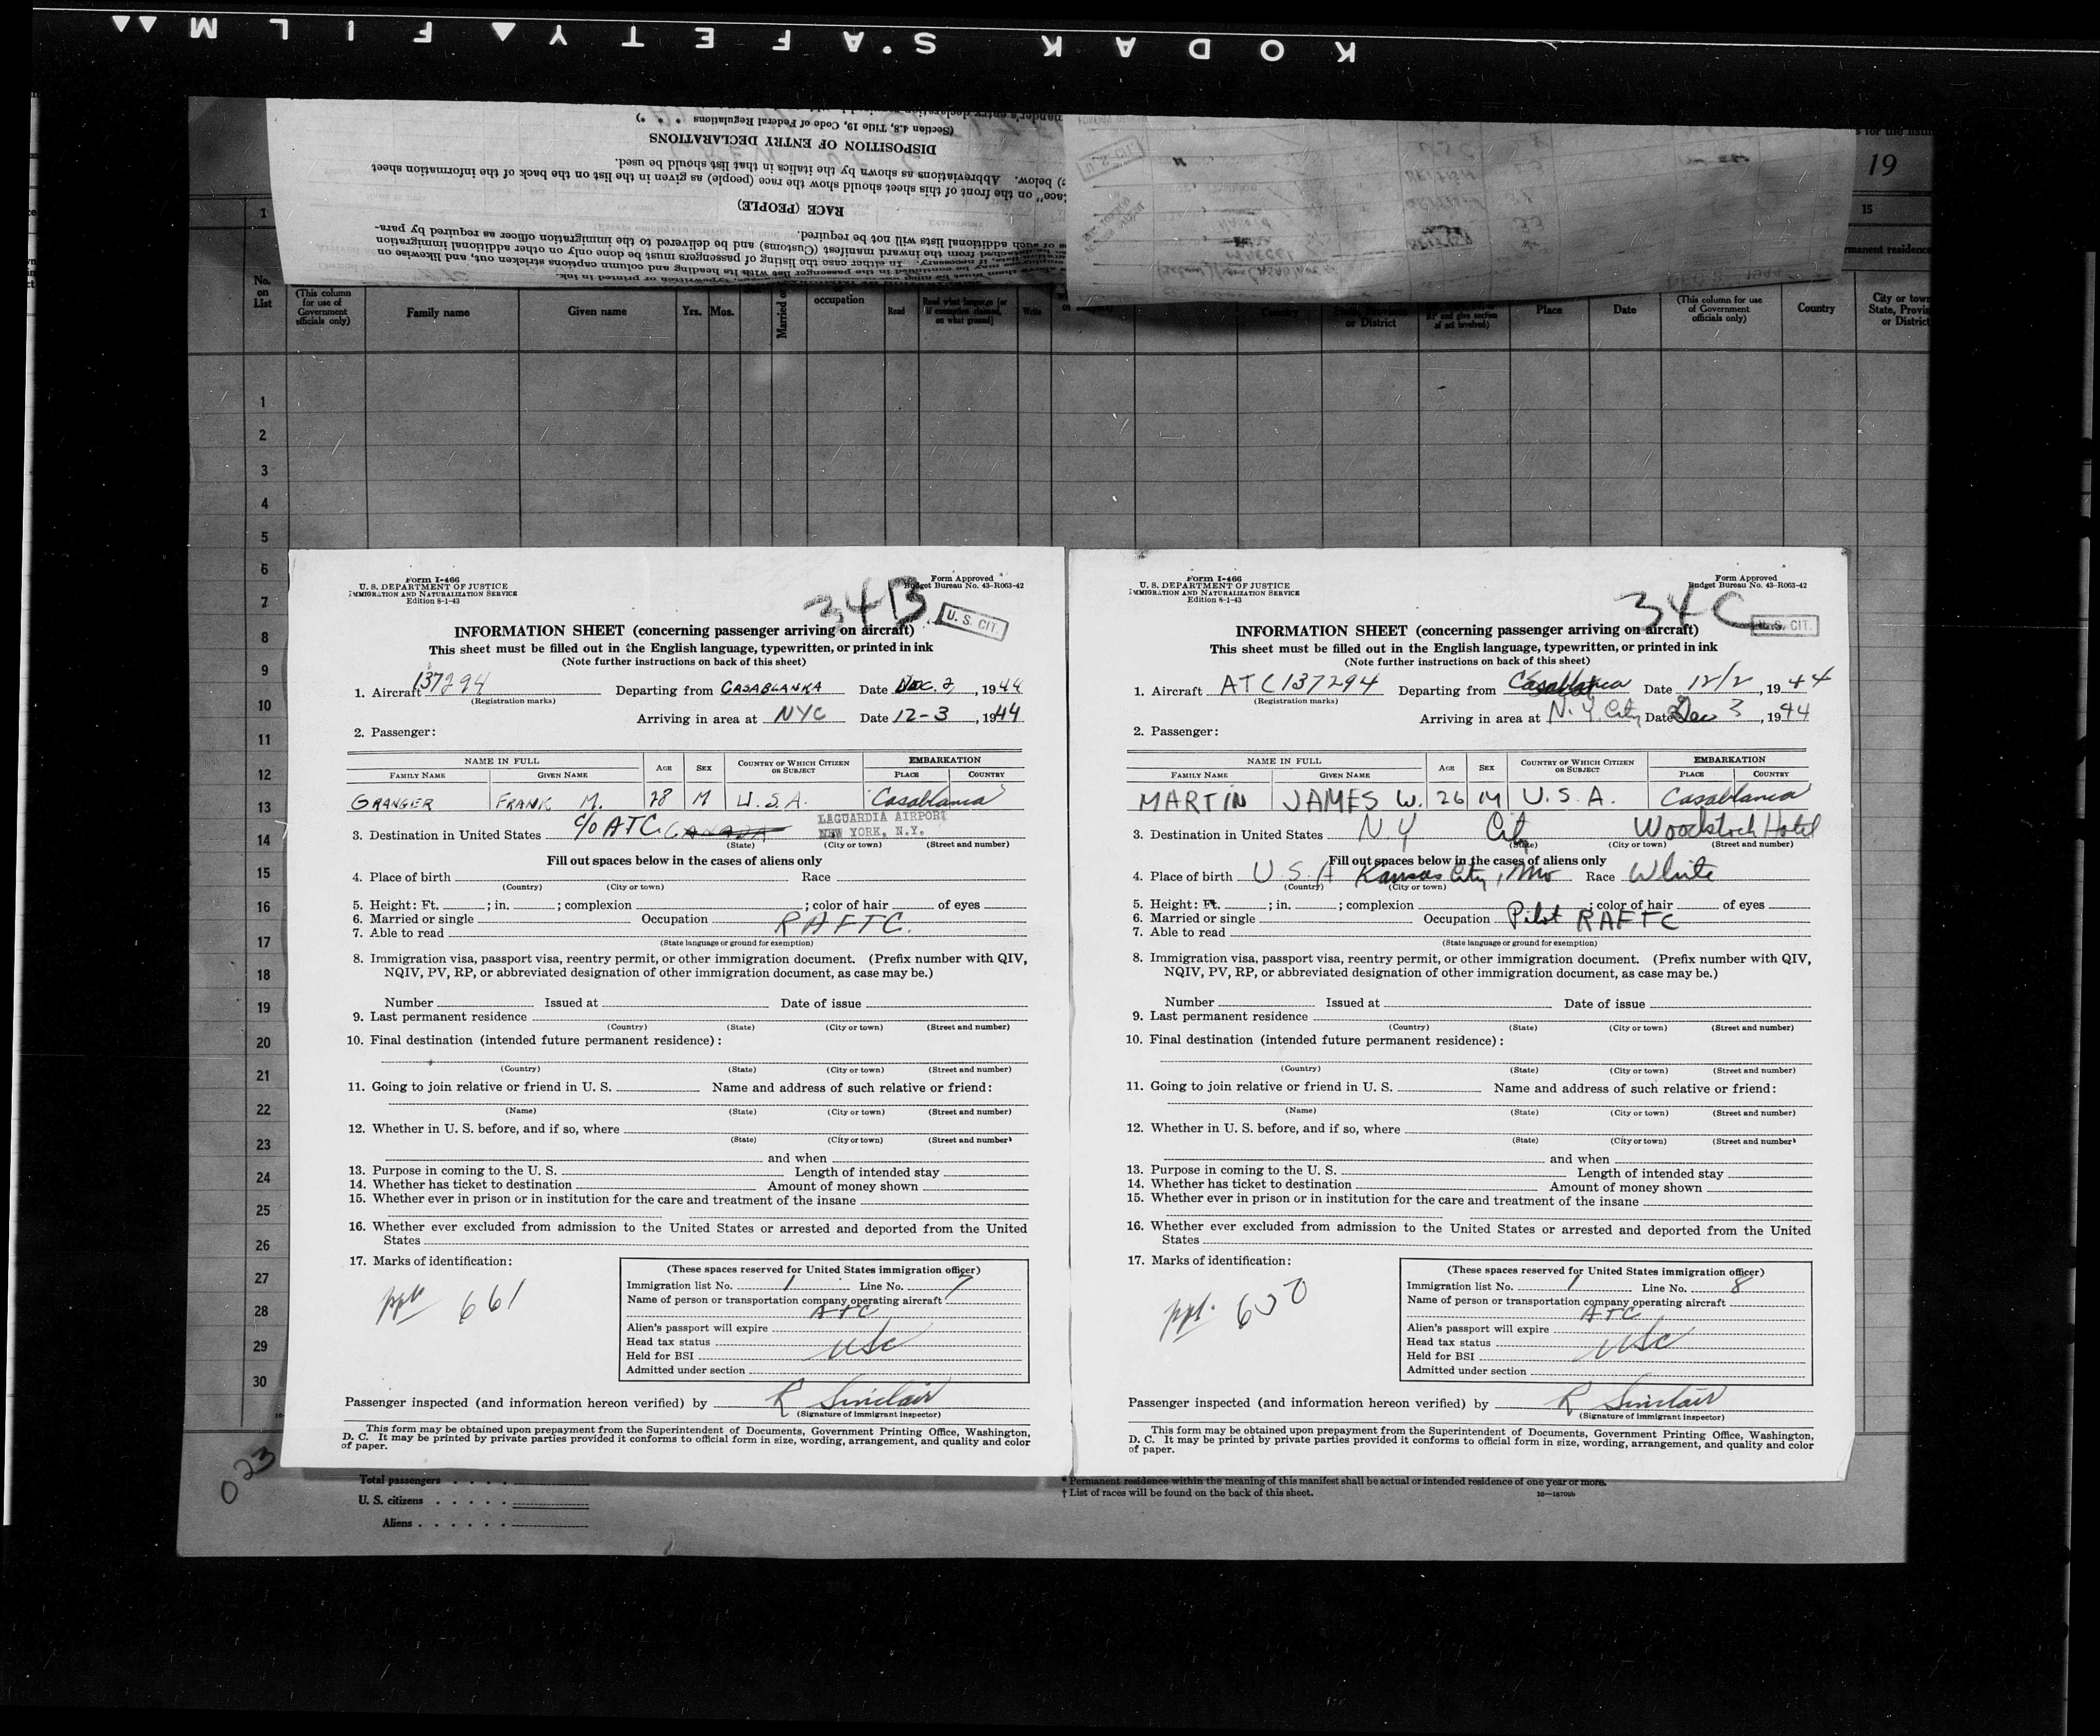 KODAK S'AFETY FILM
(Section 4.8, Title 19, Code of Federal Regulations * * *)
DISPOSITION OF ENTRY DECLARATIONS
below. Abbreviations as shown by the italics in that list should be used.
on the front of this sheet should show the race (people) as given in the list on the back of the information sheet
RACE (PEOPLE)
such additional lists will not be required.
from the inward manifest (Customs) and be delivered to the immigration officer as required by para-
In either case the listing of passengers must be done only on other additional immigration
with its heading and column captions stricken out, and likewise on
19
15
1
No. on List
(This column for use of Government officials only)
Family name
Given name
Yrs. Mos.
occupation
Read
Write
or District
Place
Date
(This column for use of Government officials only)
Country
City or town
1
2
3
4
5
6
7
8
9
10
11
12
13
14
15
16
17
18
19
20
21
22
23
24
25
26
27
28
29
30
Form I-466
U. S. DEPARTMENT OF JUSTICE
IMMIGRATION AND NATURALIZATION SERVICE
Edition 8-1-43
Form Approved
Budget Bureau No. 43-R063-42
34B
U. S. CIT.
INFORMATION SHEET (concerning passenger arriving on aircraft)
This sheet must be filled out in the English language, typewritten, or printed in ink
(Note further instructions on back of this sheet)
1. Aircraft 137294 Departing from CASABLANKA Date Dec. 2, 1944
(Registration marks)
Arriving in area at NYC Date 12-3, 1944
2. Passenger:
NAME IN FULL AGE SEX COUNTRY OF WHICH CITIZEN OR SUBJECT EMBARKATION
FAMILY NAME GIVEN NAME PLACE COUNTRY
GRANGER FRANK M. 28 M U.S.A. Casablanca
3. Destination in United States c/o ATC CANADA LAGUARDIA AIRPORT NEW YORK, N.Y.
(State) (City or town) (Street and number)
Fill out spaces below in the cases of aliens only
4. Place of birth Race
(Country) (City or town)
5. Height: Ft. ; in. ; complexion ; color of hair of eyes
6. Married or single Occupation RAFTC.
7. Able to read
(State language or ground for exemption)
8. Immigration visa, passport visa, reentry permit, or other immigration document. (Prefix number with QIV,
NQIV, PV, RP, or abbreviated designation of other immigration document, as case may be.)
Number Issued at Date of issue
9. Last permanent residence
(Country) (State) (City or town) (Street and number)
10. Final destination (intended future permanent residence):
(Country) (State) (City or town) (Street and number)
11. Going to join relative or friend in U. S. Name and address of such relative or friend:
(Name) (State) (City or town) (Street and number)
12. Whether in U. S. before, and if so, where
(State) (City or town) (Street and number)
and when
13. Purpose in coming to the U. S. Length of intended stay
14. Whether has ticket to destination Amount of money shown
15. Whether ever in prison or in institution for the care and treatment of the insane
16. Whether ever excluded from admission to the United States or arrested and deported from the United
States
17. Marks of identification:
ppt 661
(These spaces reserved for United States immigration officer)
Immigration list No. 1 Line No. 7
Name of person or transportation company operating aircraft
ATC
Alien's passport will expire
Head tax status USC
Held for BSI
Admitted under section
Passenger inspected (and information hereon verified) by R Sinclair
(Signature of immigrant inspector)
This form may be obtained upon prepayment from the Superintendent of Documents, Government Printing Office, Washington,
D. C. It may be printed by private parties provided it conforms to official form in size, wording, arrangement, and quality and color
of paper.
Form I-466
U. S. DEPARTMENT OF JUSTICE
IMMIGRATION AND NATURALIZATION SERVICE
Edition 8-1-43
Form Approved
Budget Bureau No. 43-R063-42
34C
U. S. CIT.
INFORMATION SHEET (concerning passenger arriving on aircraft)
This sheet must be filled out in the English language, typewritten, or printed in ink
(Note further instructions on back of this sheet)
1. Aircraft ATC137294 Departing from Casablanca Date 12/2, 1944
(Registration marks)
Arriving in area at N.Y. City Date Dec 3, 1944
2. Passenger:
NAME IN FULL AGE SEX COUNTRY OF WHICH CITIZEN OR SUBJECT EMBARKATION
FAMILY NAME GIVEN NAME PLACE COUNTRY
MARTIN JAMES W. 26 M U.S.A. Casablanca
3. Destination in United States N Y City Woodstock Hotel
(State) (City or town) (Street and number)
Fill out spaces below in the cases of aliens only
4. Place of birth U.S.A Kansas City, Mo Race White
(Country) (City or town)
5. Height: Ft. ; in. ; complexion ; color of hair of eyes
6. Married or single Occupation Pilot RAFTC
7. Able to read
(State language or ground for exemption)
8. Immigration visa, passport visa, reentry permit, or other immigration document. (Prefix number with QIV,
NQIV, PV, RP, or abbreviated designation of other immigration document, as case may be.)
Number Issued at Date of issue
9. Last permanent residence
(Country) (State) (City or town) (Street and number)
10. Final destination (intended future permanent residence):
(Country) (State) (City or town) (Street and number)
11. Going to join relative or friend in U. S. Name and address of such relative or friend:
(Name) (State) (City or town) (Street and number)
12. Whether in U. S. before, and if so, where
(State) (City or town) (Street and number)
and when
13. Purpose in coming to the U. S. Length of intended stay
14. Whether has ticket to destination Amount of money shown
15. Whether ever in prison or in institution for the care and treatment of the insane
16. Whether ever excluded from admission to the United States or arrested and deported from the United
States
17. Marks of identification:
ppt. 600
(These spaces reserved for United States immigration officer)
Immigration list No. 1 Line No. 8
Name of person or transportation company operating aircraft
ATC
Alien's passport will expire
Head tax status USC
Held for BSI
Admitted under section
Passenger inspected (and information hereon verified) by R Sinclair
(Signature of immigrant inspector)
This form may be obtained upon prepayment from the Superintendent of Documents, Government Printing Office, Washington,
D. C. It may be printed by private parties provided it conforms to official form in size, wording, arrangement, and quality and color
of paper.
023
Total passengers
U. S. citizens
Aliens
* Permanent residence within the meaning of this manifest shall be actual or intended residence of one year or more.
† List of races will be found on the back of this sheet.